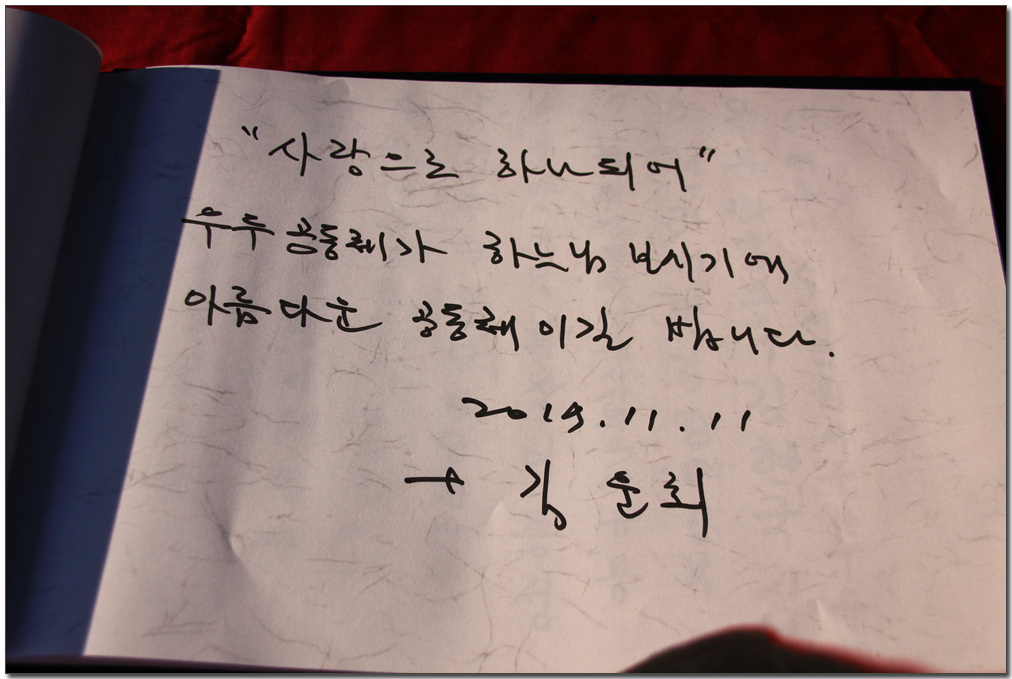 "사랑으로 하나되어"
우두 공동체가 하느님 보시기에
아름다운 공동체이길 빕니다.
2019.11.11
+ 김 운회